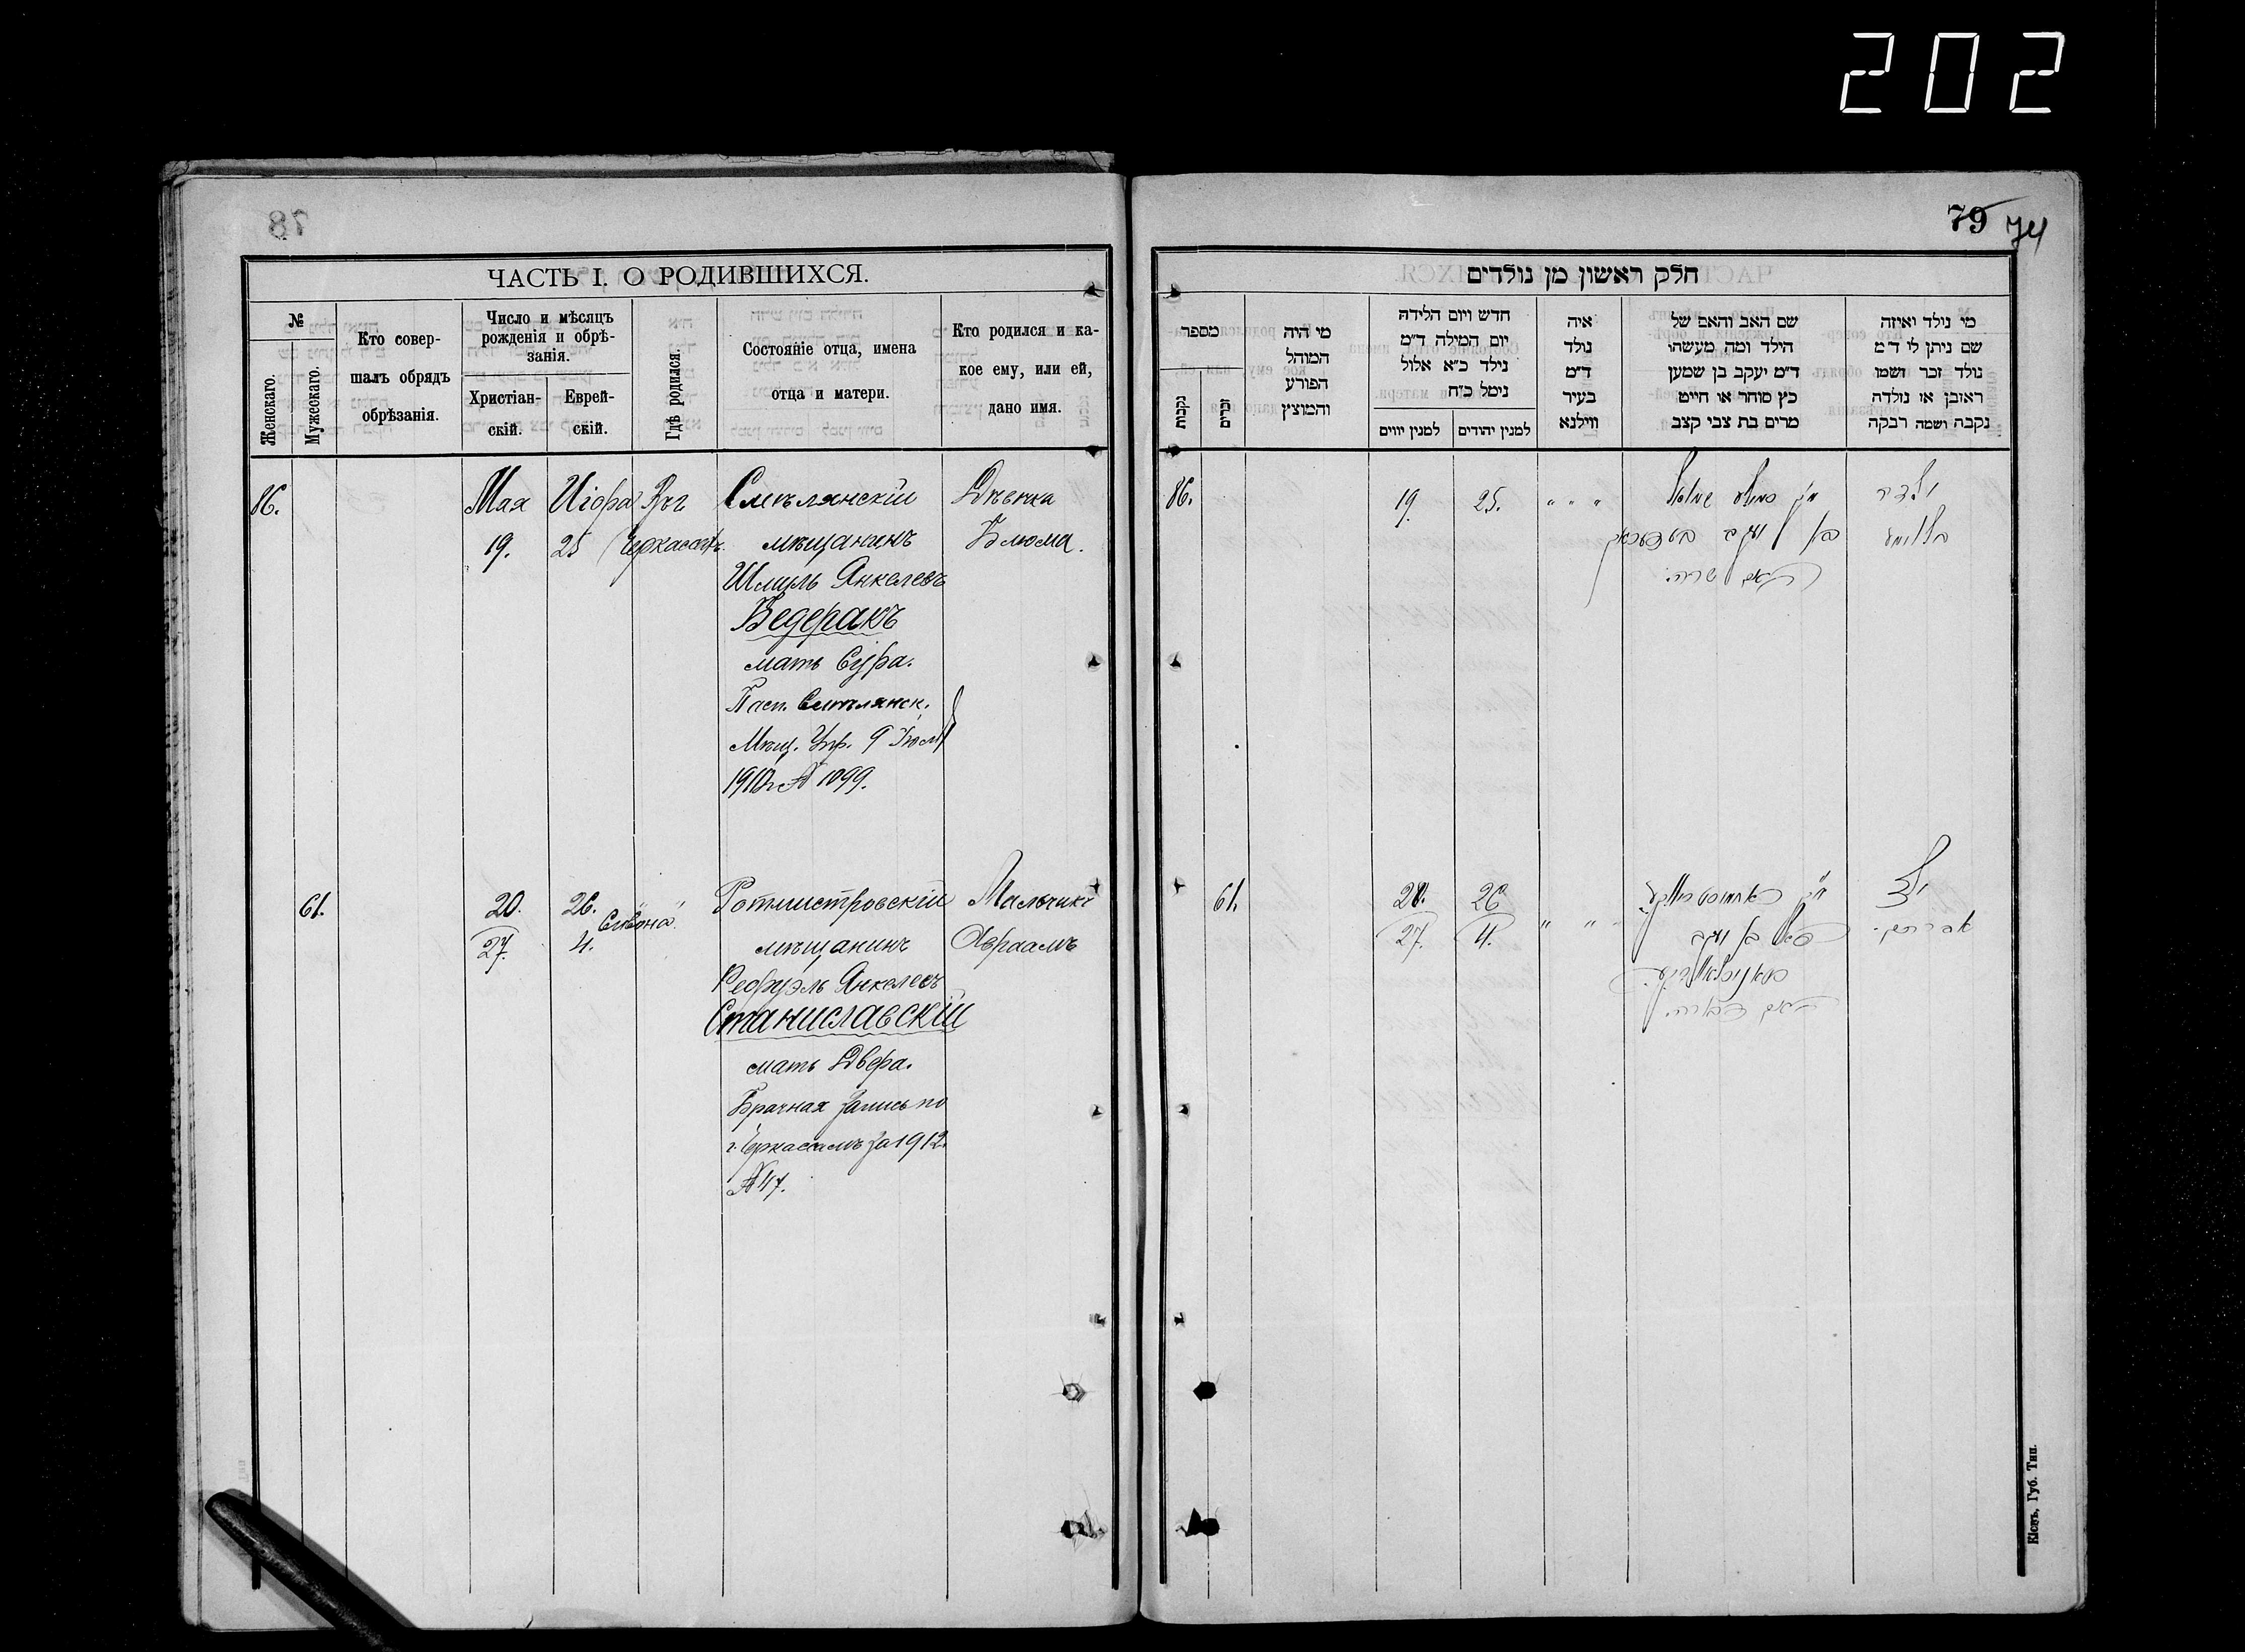 202
78
ЧАСТЬ I. О РОДИВШИХСЯ.
№
Женскаго.
Мужескаго.
Кто совер-
шалъ обрядъ
обрѣзанія.
Число и мѣсяцъ
рожденія и обрѣ-
занія.
Христіан-
скій.
Еврей-
скій.
Гдѣ родился.
Состояніе отца, имена
отца и матери.
Кто родился и ка-
кое ему, или ей,
дано имя.
86.
Мая
19.
Иіора
25
Въ г
Черкасахъ.
Смѣлянскій
мѣщанинъ
Шмиль Янкелевъ
Ведеракъ
мать Сура.
Пасп. Смѣлянск.
Мѣщ. Упр. 9
№ 1099.
Дѣвочка
Блюма.
61.
20.
27.
26.
Сивона
4.
Ротмистровскій
мѣщанинъ
Рефуэль Янкелевъ
Станиславскій
мать Двера.
Брачная запись по
г. Черкасамъ за 1912.
№ 47.
Мальчикъ
Авраамъ
79 74
חלק ראשון מן נולדים
מספר
נקבות
זכרים
מי היה
המוהל
הפורע
והמוצץ
חדש ויום הלידה
יום המילה ד״מ
נילד כ״א אלול
נימל כ״ח
למנין יווים
למנין יהודים
איה
נולד
ד״מ
בעיר
ווילנא
שם האב והאם של
הילד ומה מעשהו
ד״מ יעקב בן שמען
כץ סוחר או חייט
מרים בת צבי קצב
מי נולד ואיזה
שם ניתן לי ד״מ
נולד זכר ושמו
ראובן או נולדה
נקבה ושמה רבקה
86.
19.
25.
" " "
בן יעקב
האם שרה.
ילדה
בלומע
61.
20.
27.
26
4.
" " "
רפאל בן יעקב
סטאניסלאווסקי
האם דבארה.
ילד
אברהם.
Кіевъ, Губ. Тип.